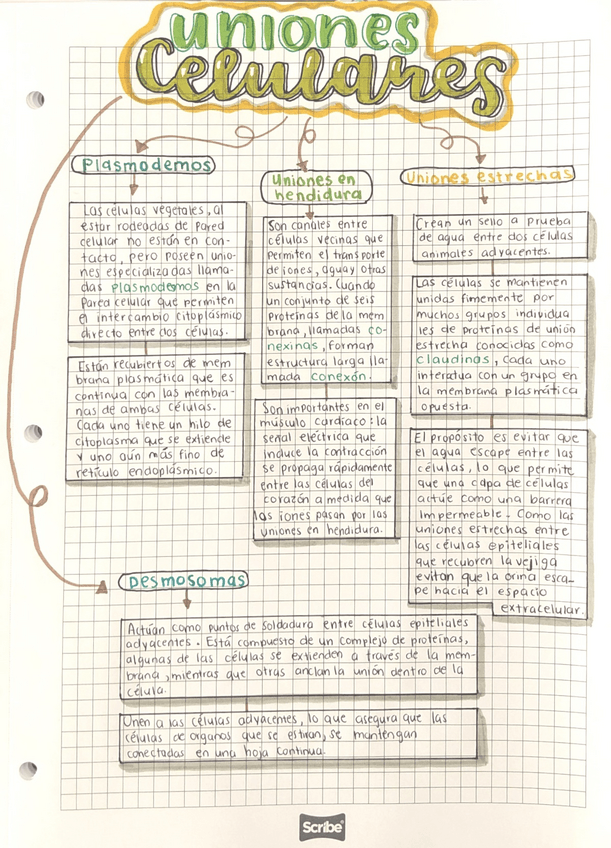 uniones
Celulares
Plasmodemos
Las células vegetales, al
estar rodeadas de pared
celular no están en con-
tacto, pero poseen unio-
nes especializadas llama-
das plasmodemos en la
Pared celular que permiten
el intercambio citoplásmico
directo entre dos células.
Están recubiertos de mem
brana plasmática que es
continua con las membra-
nas de ambas células.
Cada uno tiene un hilo de
citoplasma que se extiende
y uno aún más fino de
retículo endoplásmico.
Uniones en
hendidura
Son canales entre
células vecinas que
permiten el transporte
de iones, agua y otras
sustancias. Cuando
un conjunto de seis
Proteínas de la mem
brana, llamadas co-
nexinas, forman
estructura larga lla-
mada conexón.
Son importantes en el
músculo cardiaco: la
señal eléctrica que
induce la contracción
se propaga rápidamente
entre las células del
corazón a medida que
los iones pasan por las
uniones en hendidura.
Uniones estrechas
Crean un sello a prueba
de agua entre dos células
animales adyacentes.
Las células se mantienen
unidas fimemente por
muchos grupos individua
les de proteínas de unión
estrecha conocidas como
claudinas, cada uno
interatua con un grupo en
la membrana plasmática
opuesta.
El propósito es evitar que
el agua escape entre las
células, lo que permite
que una capa de células
actúe como una barrera
impermeable. Como las
uniones estrechas entre
las células epiteliales
que recubren la vejiga
evitan que la orina esca-
pe hacia el espacio
extracelular.
Desmosomas
Actúan como puntos de soldadura entre células epiteliales
adyacentes. Está compuesto de un complejo de proteínas,
algunas de las células se extienden a través de la mem-
brana, mientras que otras anclan la unión dentro de la
célula.
Unen a las células adyacentes, lo que asegura que las
células de organos que se estiran, se mantengan
conectadas en una hoja continua.
Scribe